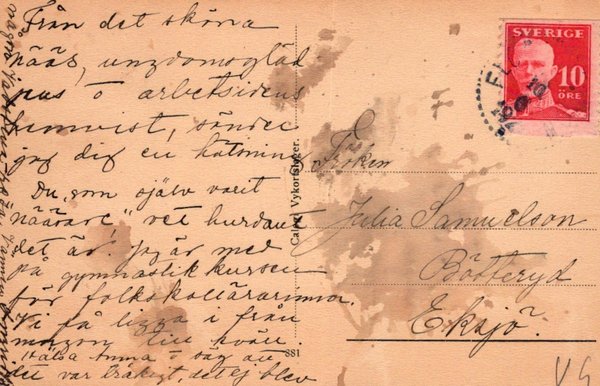 Från det sköna
näär, ungdomsgläd
jens o arbetsidens
hemvist, sänder
jag dig en hälsning
Du, som själv varit
"näärare" vet hurdant
det är. Jag är med
på gymnastikkursen
för folkskollärarinnor.
Vi få ligga i från
morgon till kväll.
Hälsa Anna o säg att
det var tråkigt, det ej blev
Calegi Vykortslager.
881
SVERIGE
10
ÖRE
10
Fröken
Julia Samuelson
Bötteryd
Eksjö.
VG